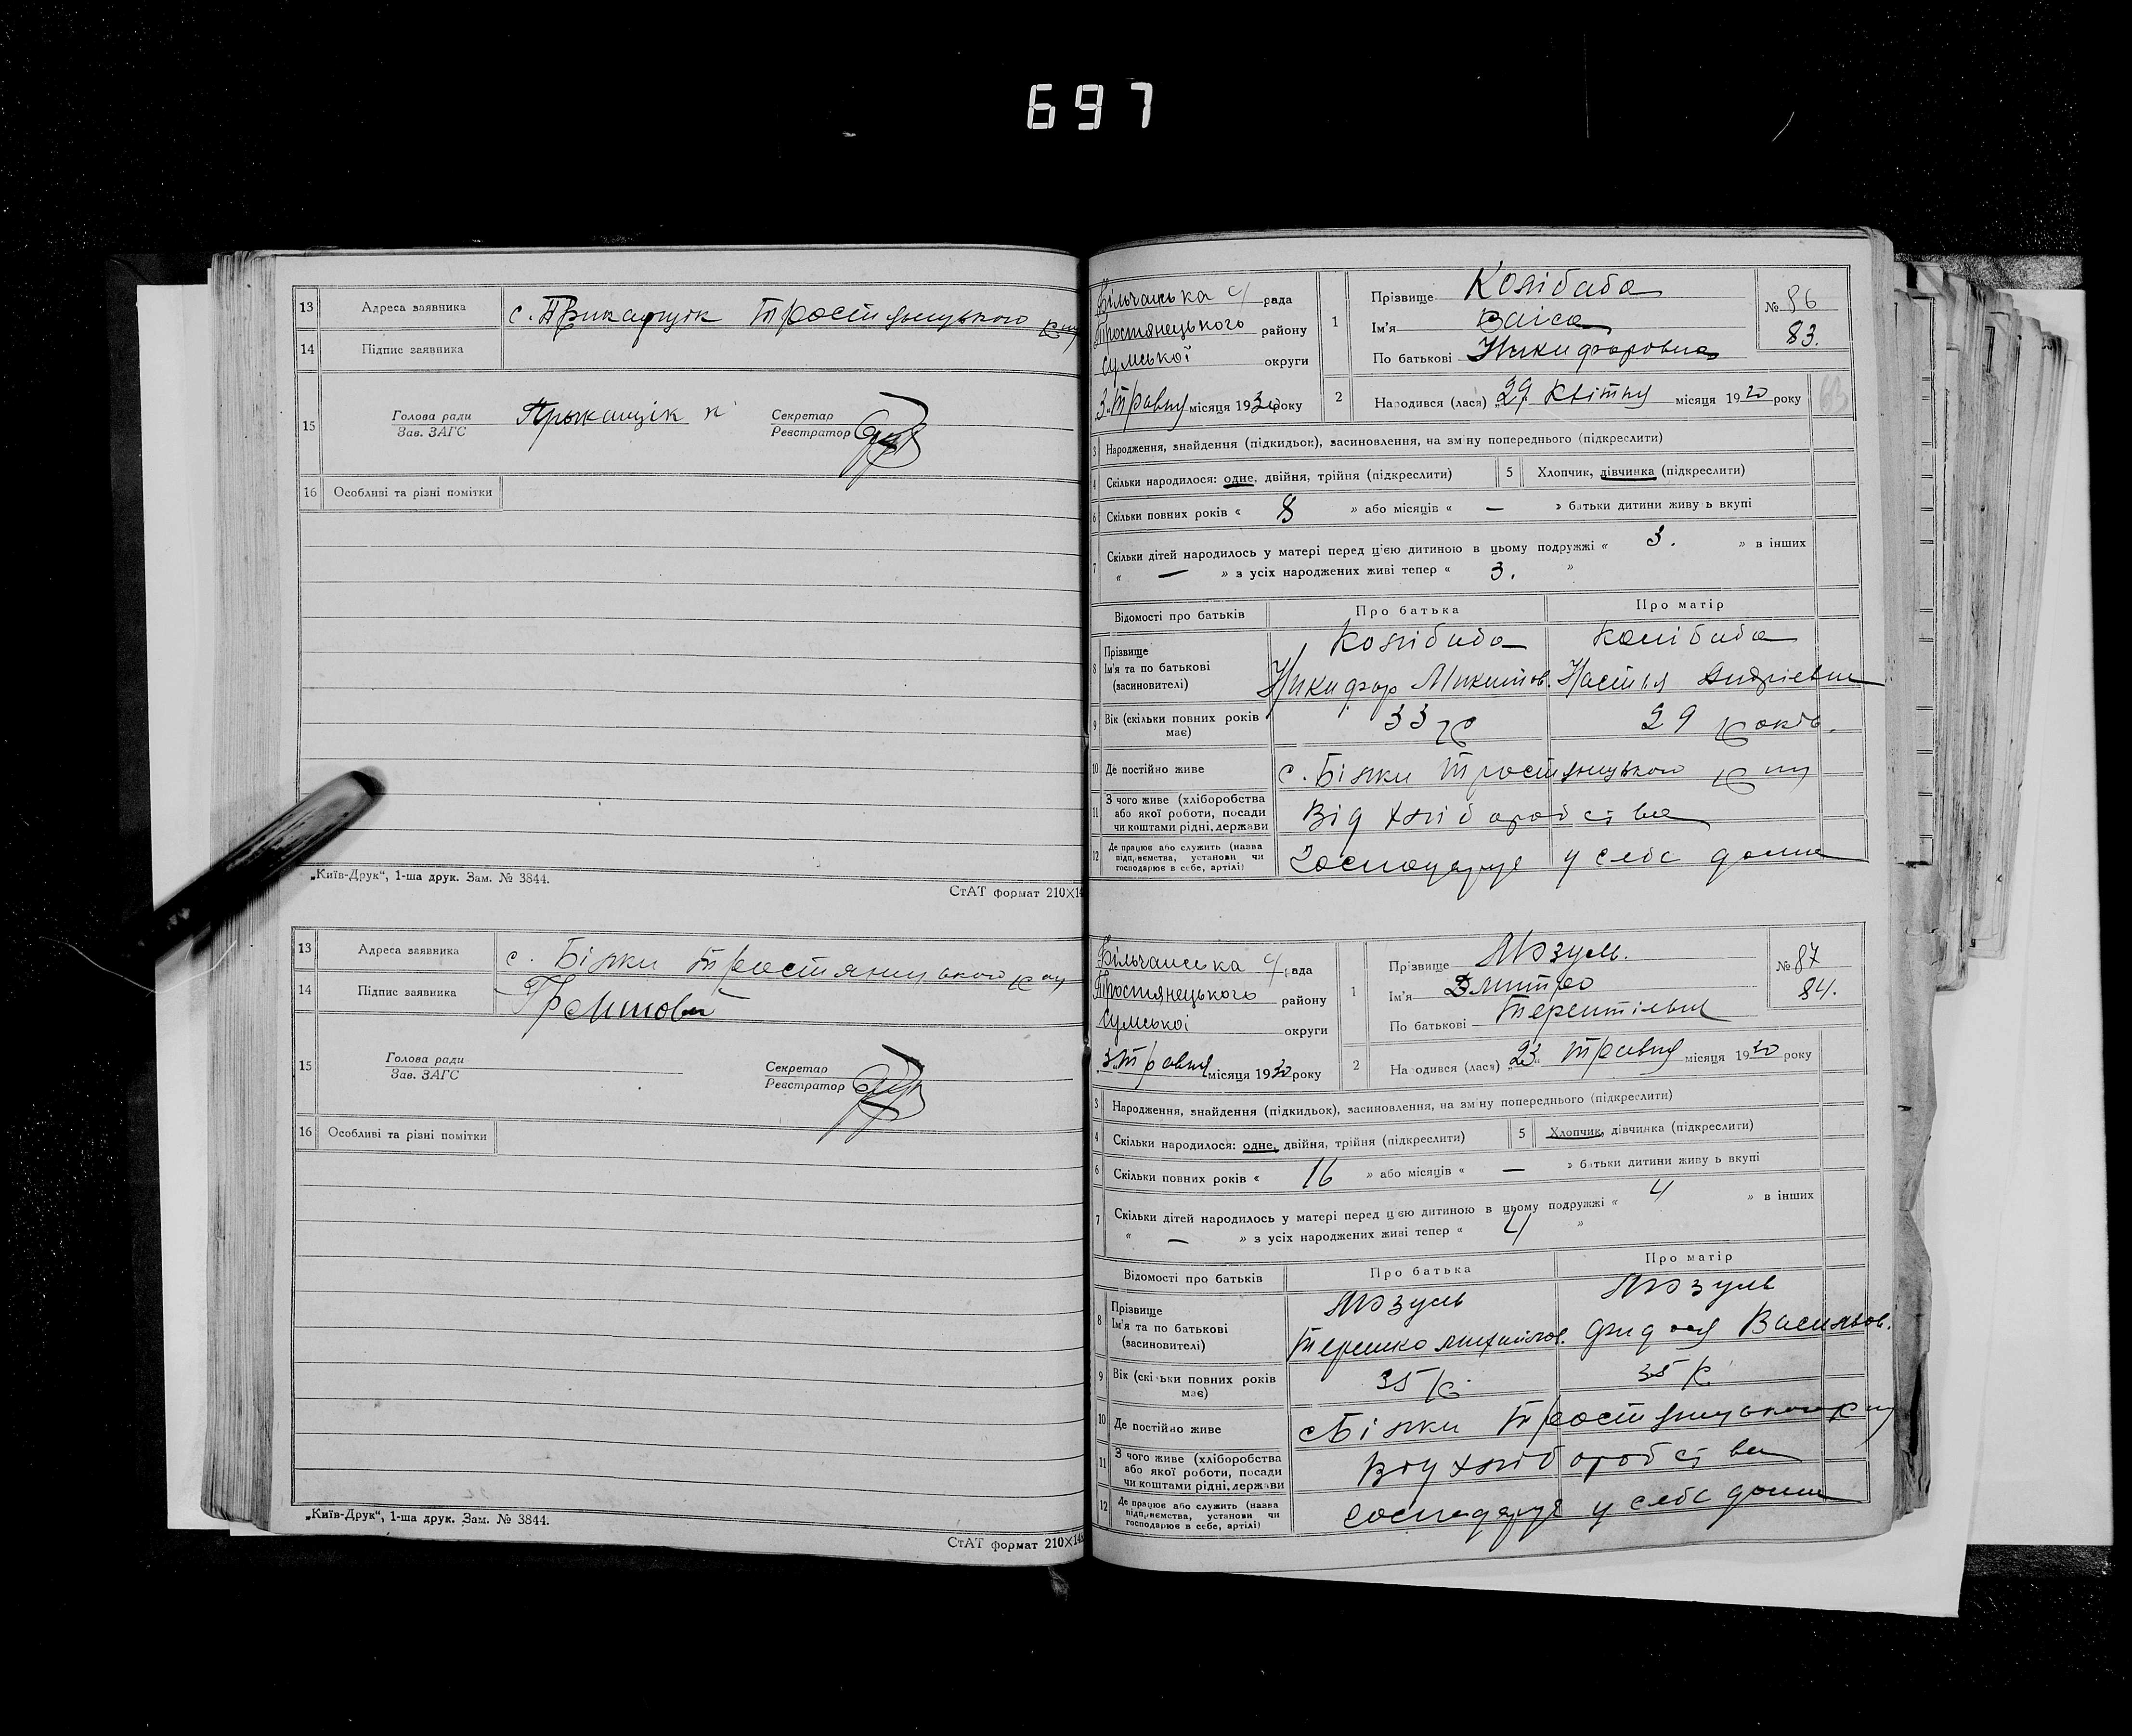 697
13 Адреса заявника с. Прикащик Тростянецького р-ну
14 Підпис заявника
15 Голова ради Прыкащик Секретар
Зав. ЗАГС Реєстратор
16 Особливі та різні помітки
„Київ-Друк“, 1-ша друк. Зам. № 3844.
СтАТ формат 210×14
13 Адреса заявника с. Білки Тростянецького р-ну
14 Підпис заявника
15 Голова ради Секретар
Зав. ЗАГС Реєстратор
16 Особливі та різні помітки
„Київ-Друк“, 1-ша друк. Зам. № 3844.
СтАТ формат 210×148
Більчанська с/рада
Тростянецького району
Сумської округи
3 Травня місяця 1930 року
1 Прізвище Колібаба
Ім'я Раїса
По батькові Никифоровна
№ 86
83.
2 Народився (лася) „29“ Квітня місяця 1930 року
63
3 Народження, знайдення (підкидьок), засиновлення, на зміну попереднього (підкреслити)
4 Скільки народилося: одне, двійня, трійня (підкреслити) 5 Хлопчик, дівчинка (підкреслити)
6 Скільки повних років « 8 » або місяців « — » батьки дитини живуть вкупі
7 Скільки дітей народилось у матері перед цією дитиною в цьому подружжі « 3. » в інших
« — » з усіх народжених живі тепер « 3. »
Відомості про батьків Про батька Про матір
8 Прізвище Колібаба Колібаба
Ім'я та по батькові Никифор Микитов. Настья Андрієвна
(засиновителі)
9 Вік (скільки повних років має) 33 р 29 років.
10 Де постійно живе с. Білки Тростянецького р-ну
11 З чого живе (хліборобства
або якої роботи, посади Від хліборобства
чи коштами рідні, держави
12 Де працює або служить (назва
підприємства, установи чи Господарує у себе дома
господарює в себе, артілі)
Більчанська с/рада
Тростянецького району
Сумської округи
3 Травня місяця 1930 року
1 Прізвище Мозуль.
Ім'я Дмитро
По батькові Терентієвич
№ 87
84.
2 Народився (лася) „23“ Травня місяця 1930 року
3 Народження, знайдення (підкидьок), засиновлення, на зміну попереднього (підкреслити)
4 Скільки народилося: одне, двійня, трійня (підкреслити) 5 Хлопчик, дівчинка (підкреслити)
6 Скільки повних років « 16 » або місяців « — » батьки дитини живуть вкупі
7 Скільки дітей народилось у матері перед цією дитиною в цьому подружжі « 4 » в інших
« — » з усіх народжених живі тепер « 4 »
Відомості про батьків Про батька Про матір
8 Прізвище Мозуль Мозуль
Ім'я та по батькові Терешко Михайлов. Васильов.
(засиновителі)
9 Вік (скільки повних років має) 35 р. 35 р.
10 Де постійно живе с Білки Тростянецького р-ну
11 З чого живе (хліборобства
або якої роботи, посади Від хліборобства
чи коштами рідні, держави
12 Де працює або служить (назва
підприємства, установи чи Господарує у себе дома
господарює в себе, артілі)